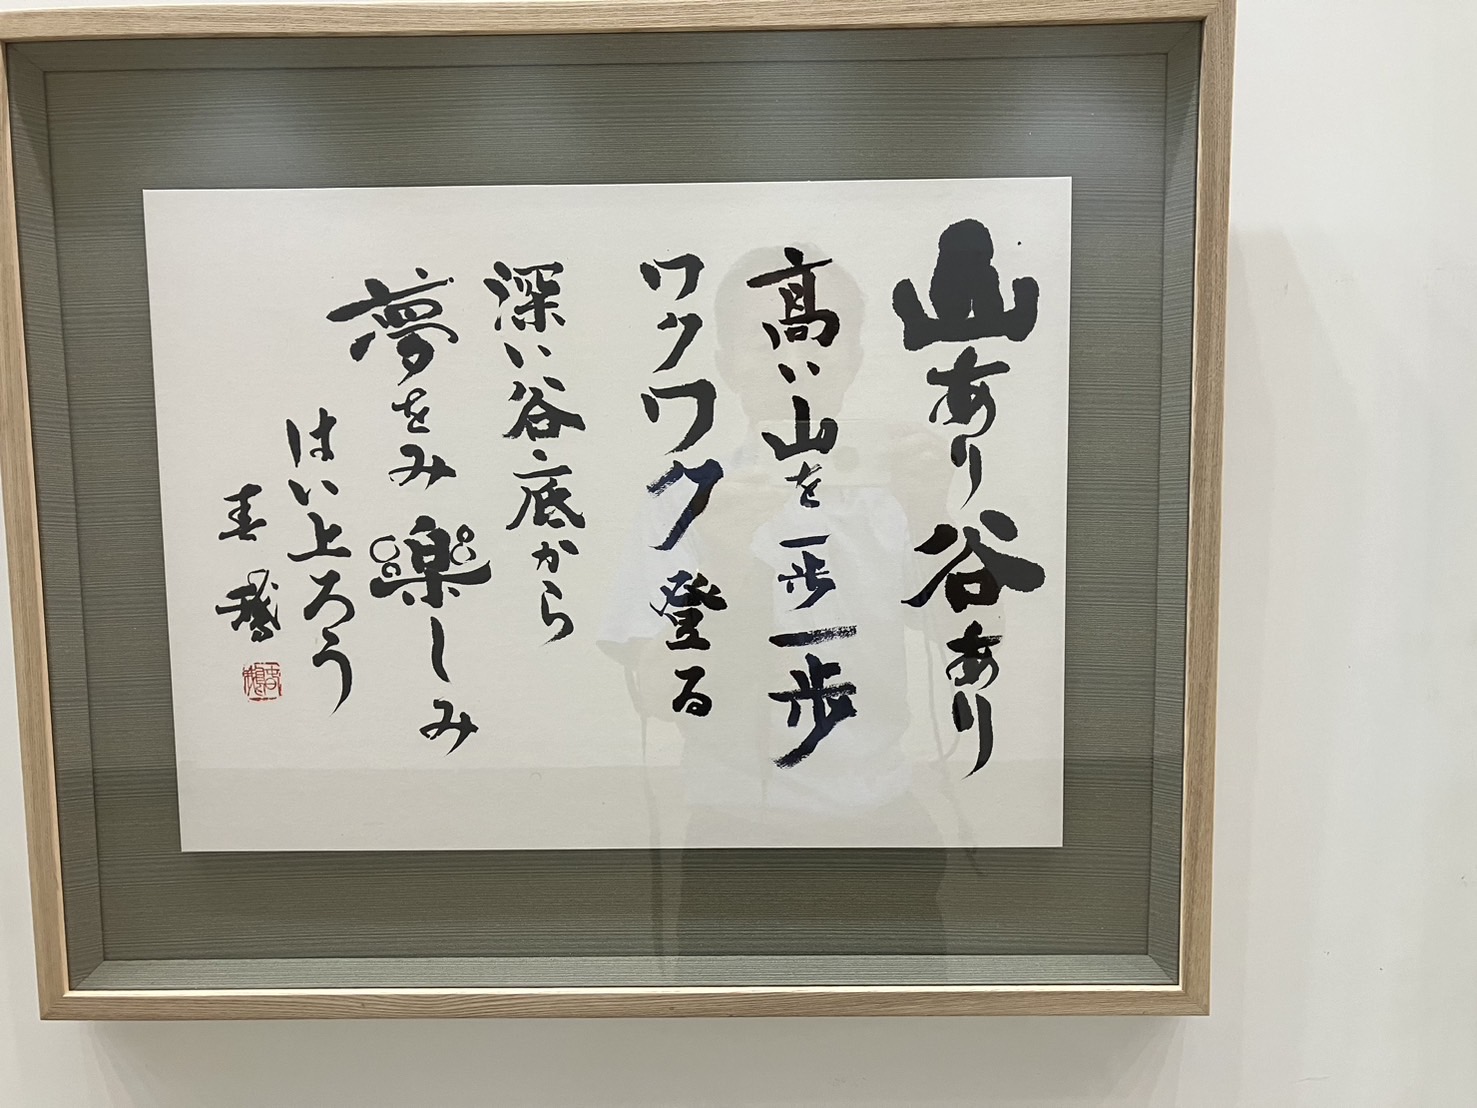 山あり谷あり
高い山を一歩一歩
ワクワク登る
深い谷底から
夢をみ楽しみ
はい上ろう
春鵝